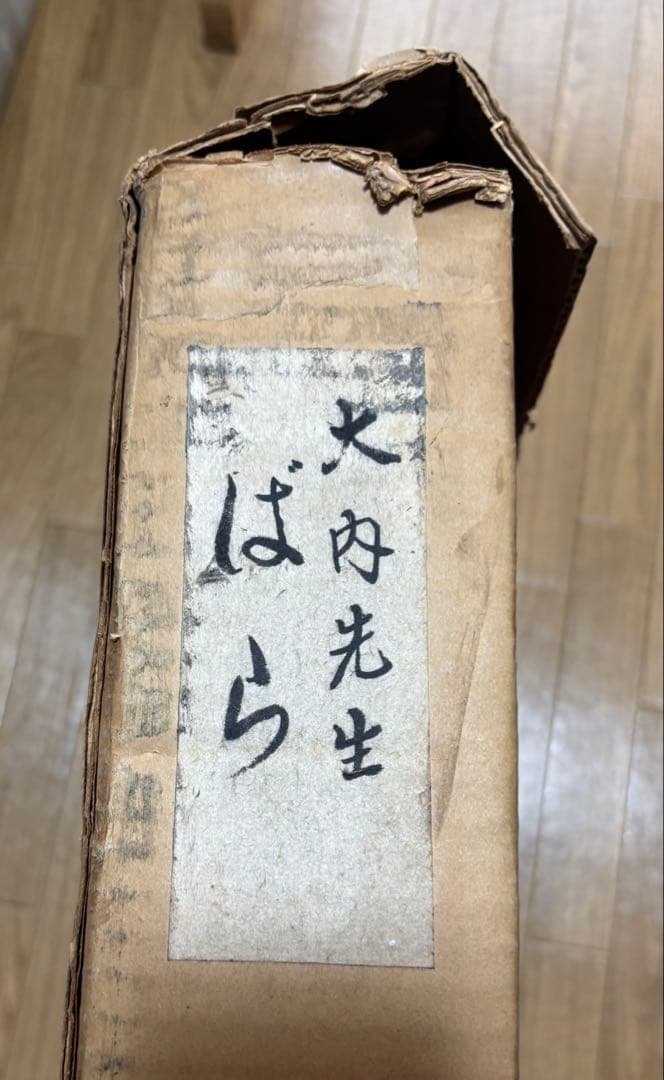 大内先生
ばら